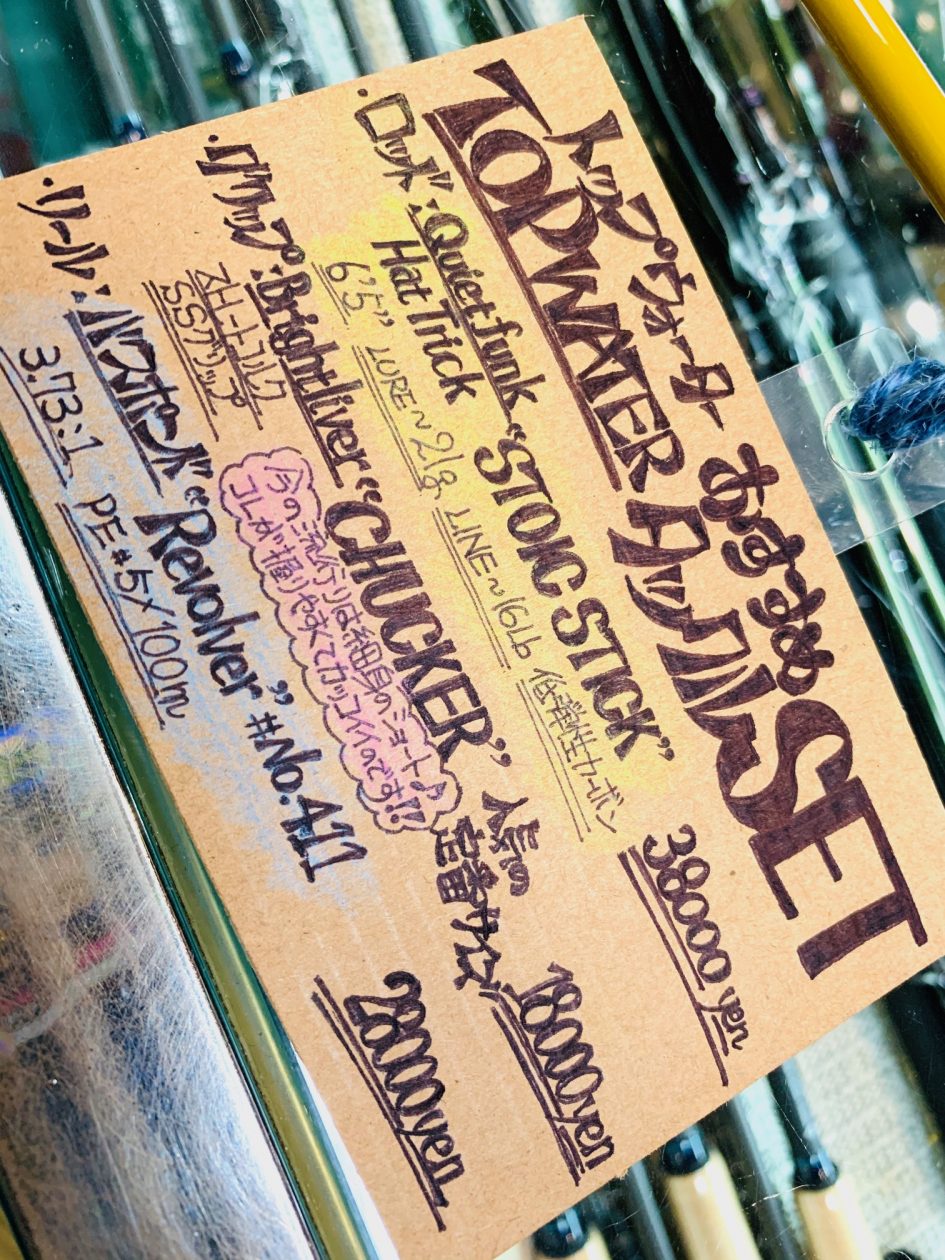 トップウォーター おすすめ
TOPWATER タックルSET
・ロッド:Quiet funk "STOIC STICK" 38000yen
Hat Trick
6'5" LURE〜21g LINE〜16Lb 低弾性カーボン
・グリップ:Brightliver "CHUCKER" 人気の定番サイズ! 18000yen
ストートコルク
SSグリップ
今の流行りは細身のショート♪
コレが握りやすくてカッコイイのです!!
・リール:ハンスオポード "Revolver" #No.411 28000yen
3.73:1 PE#5×100m